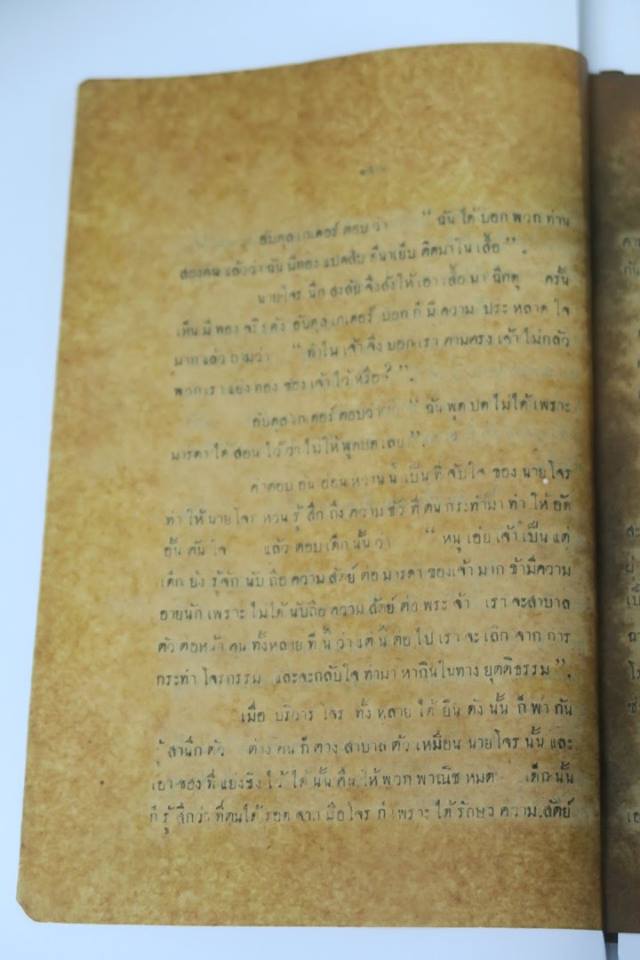 อับดุลเกเดอร์ ตอบ ว่า “ ฉัน ได้ บอก พวก ท่าน
สองคน แล้วว่า ฉัน มีทอง แปดสิบ ติดมาใน เสื้อ ” .
นายโจร นึก สงสัย จึงสั่งให้ เอา เสื้อ มา ฉีกดู ครั้น
เห็น มี ทอง จริง ดัง อับดุลเกเดอร์ บอก ก็ มี ความ ประ หลาด ใจ
มาก แล้ว ถามว่า “ ทำไม เจ้า จึง บอก เรา ตามตรง เจ้า ไม่กลัว
พวกเรา แย่ง ทอง ของ เจ้า ไว้ หรือ ? ” .
อับดุลเกเดอร์ ตอบว่า “ ฉัน พูด ปด ไม่ได้ เพราะ
มารดา ได้ สอน ไว้ว่า ไม่ให้ พูดปด เลย ” .
คำตอบ อัน อ่อน หวาน นี้ เป็น ที่ จับใจ ของ นาย โจร
ทำ ให้ นาย โจร หวน รู้ สึก ถึง ความ ชั่ว ที่ ตน กระทำมา ทำ ให้ อัด
อั้น ตัน ใจ แล้ว ตอบ เด็ก นั้น ว่า “ หนู เอ๋ย เจ้า เป็น แต่
เด็ก ยัง รู้จัก นับ ถือ ความ สัตย์ ต่อ มารดา ของเจ้า มาก ข้ามีความ
อายนัก เพราะ ไม่ได้ นับถือ ความ สัตย์ ต่อ พระ จ้า เรา จะสาบาล
ตัว ต่อหน้า คน ทั้งหลาย ที่ นี้ ว่า แต่ นี้ ต่อ ไป เรา จะ เลิก จาก การ
กระทำ โจรกรรม และจะกลับใจ ทำมา หากินในทาง ยุตติธรรม ” .
เมื่อ บริวาร โจร ทั้ง หลาย ได้ ยิน ดัง นั้น ก็ พา กัน
รู้ สำนึก ตัว ต่าง คน ก็ ต่าง สาบาล ตัว เหมือน นายโจร นั้น และ
เอา ของ ที่ แย่งชิง ไว้ ได้ นั้น คืน ให้ พวก พาณิช หมด เด็ก นั้น
ก็ รู้ สึกว่า ที่ตนได้ รอด จาก มือโจร ก็ เพราะ ได้ รักษา ความ สัตย์